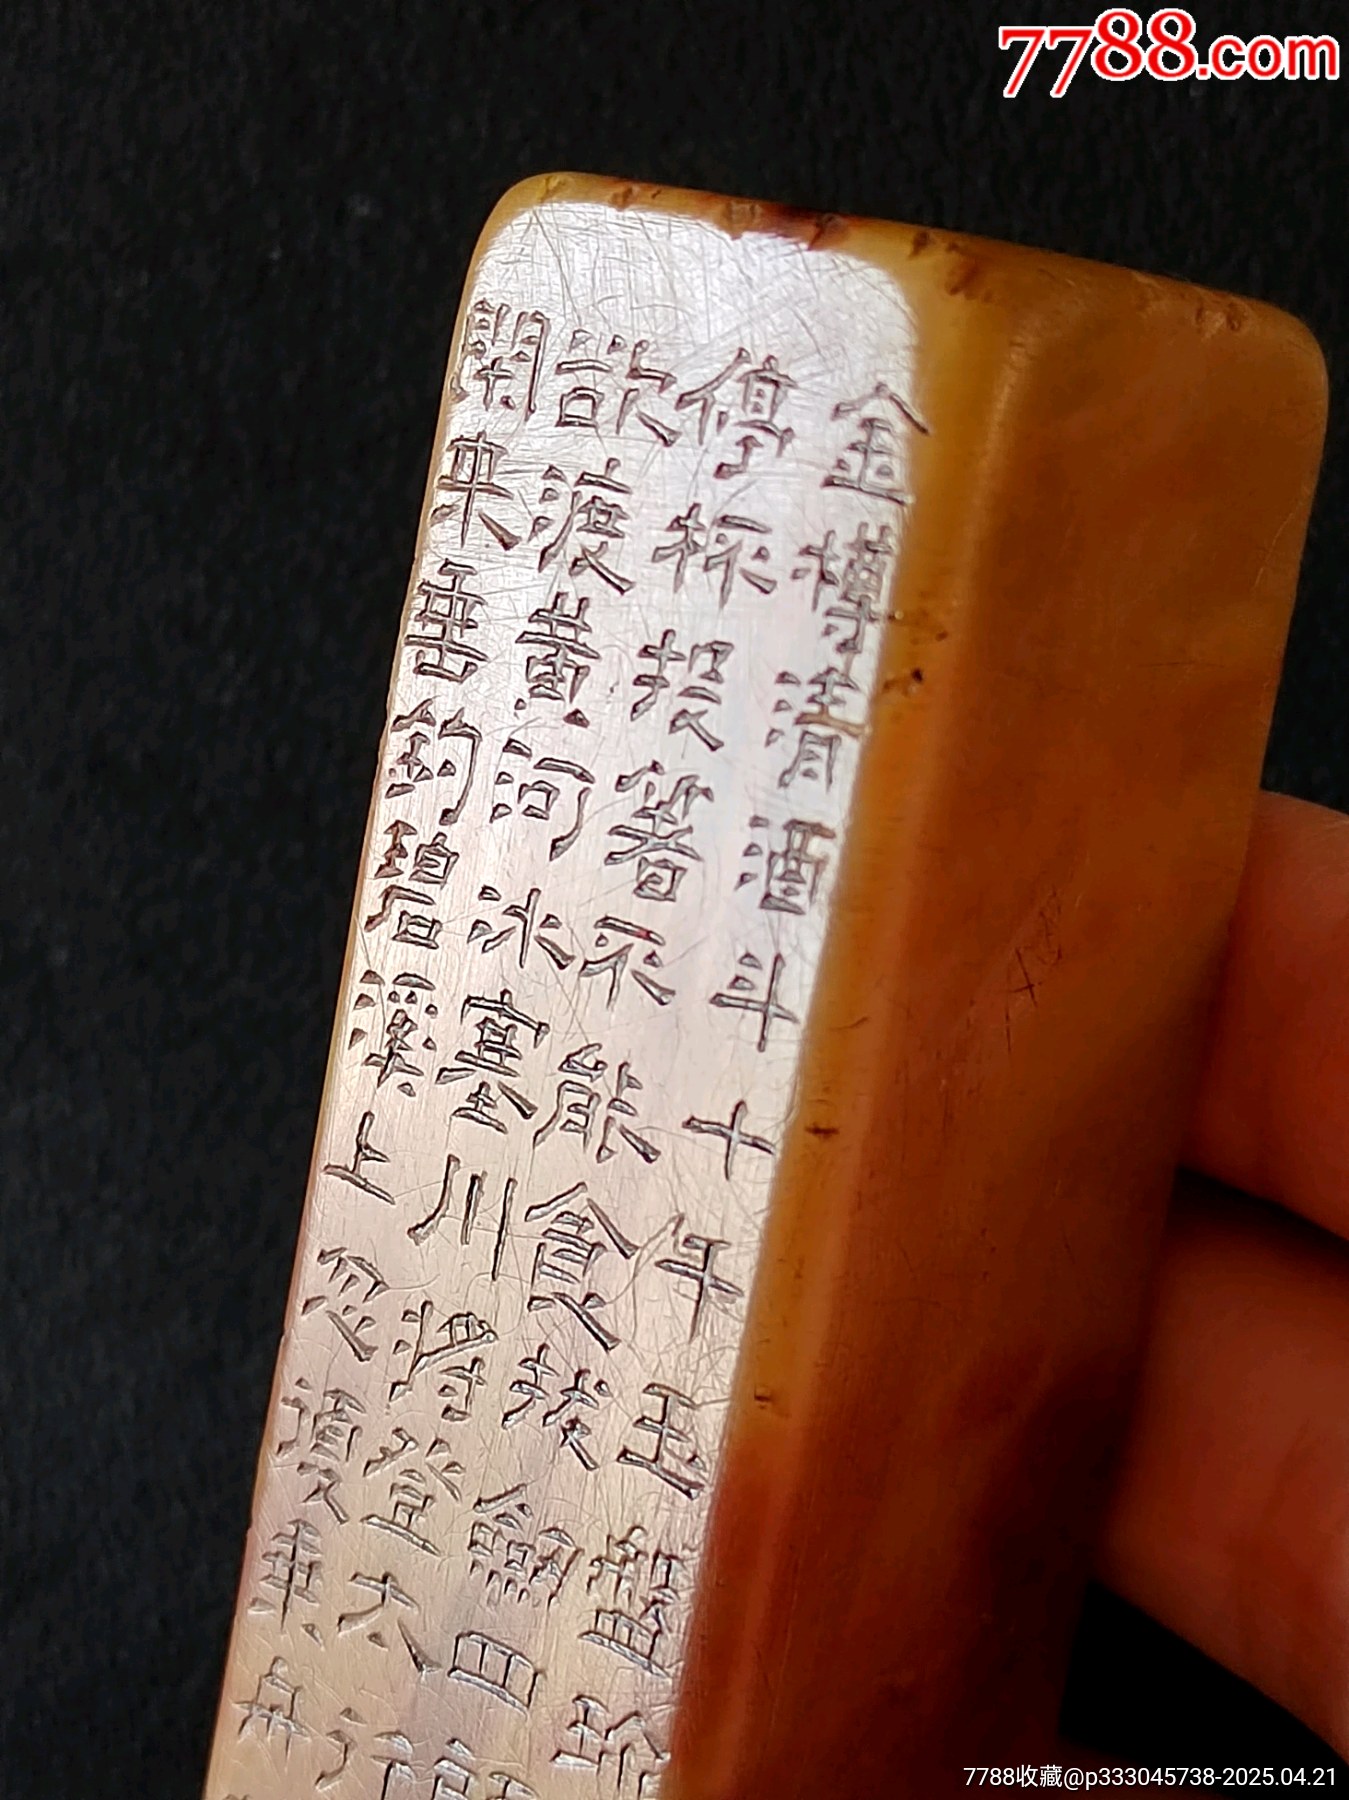 7788.com
金樽清酒斗十千玉盤珍
停杯投箸不能食拔劍四
欲渡黃河冰塞川將登太行
閒來垂釣碧溪上忽復乘舟
7788收藏@p333045738-2025.04.21